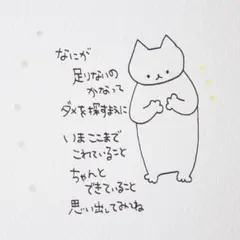 なにが
足りないの
かなって
ダメを探すまえに
いまここまで
これていること
ちゃんと
できていること
思い出してみてね